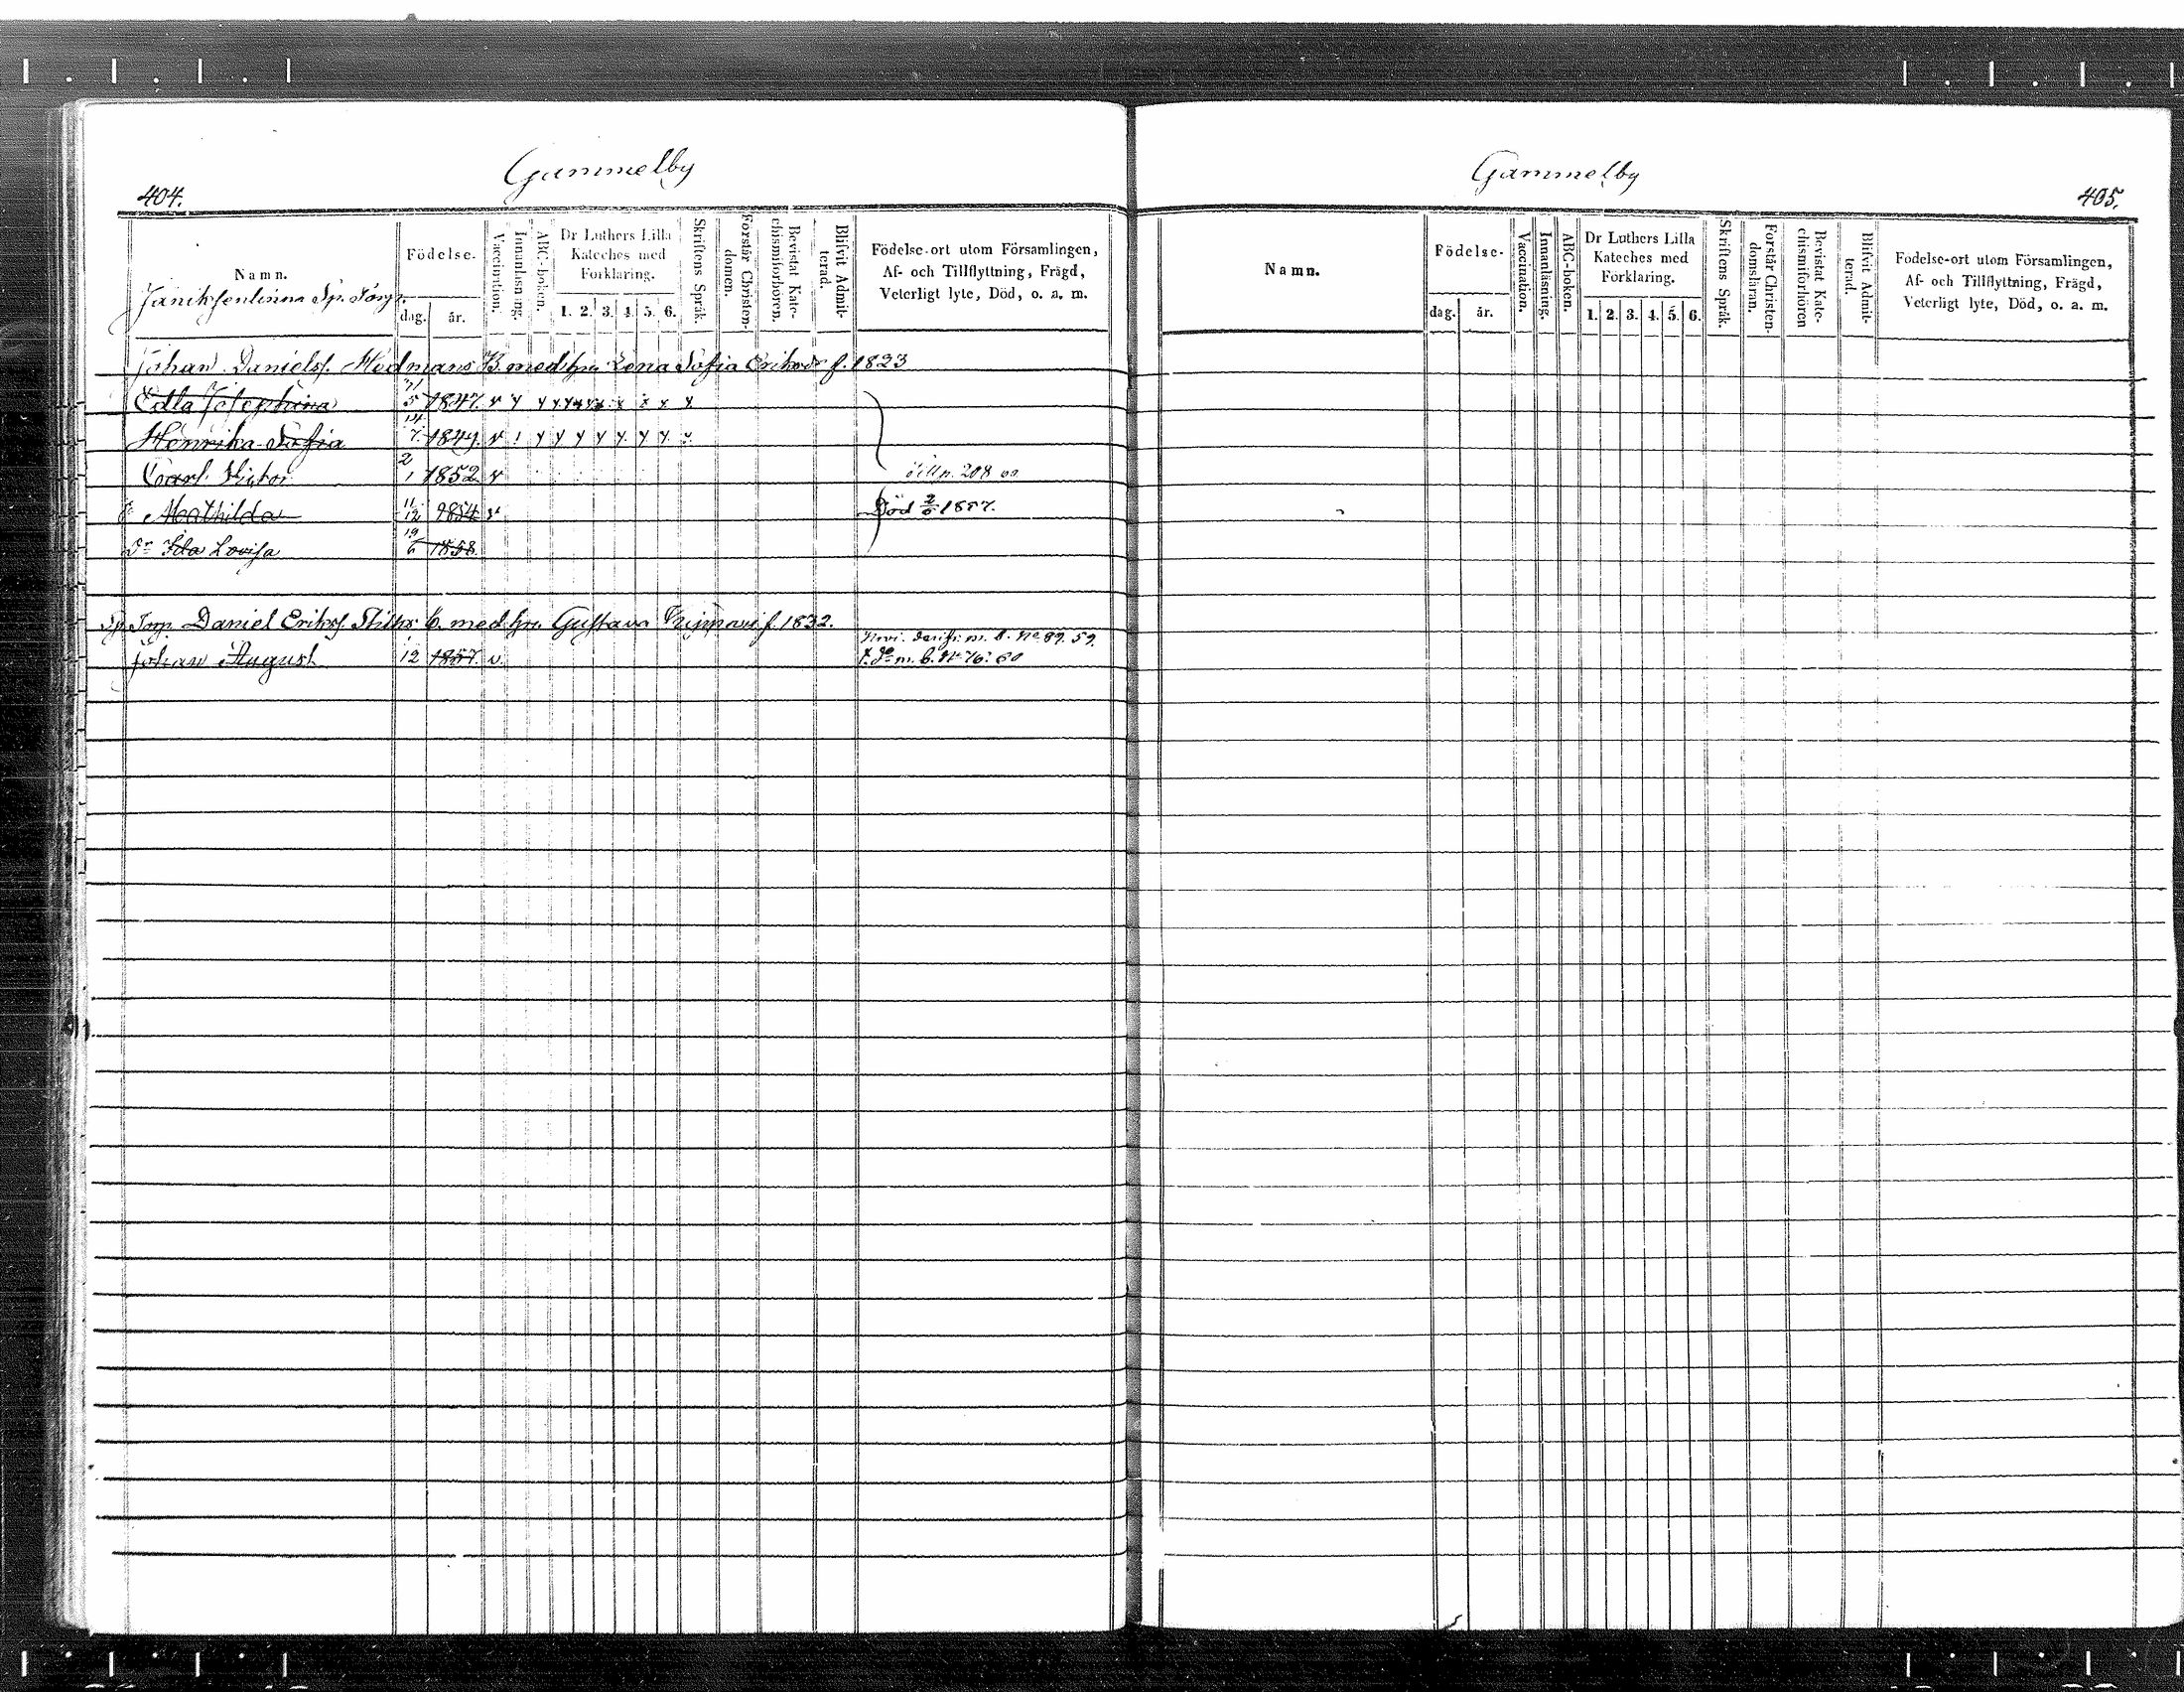 Gammelby
404.
Namn.
Födelse.
dag. år.
Vaccination.
Innanläsning.
ABC-boken.
Dr Luthers Lilla
Kateches med
Förklaring.
1. 2. 3. 4. 5. 6.
Skriftens Språk.
Förstår Christen-
domen.
Bevistat Kate-
chismiförhören.
Blifvit Admit-
terad.
Födelse-ort utom Församlingen,
Af- och Tillflyttning, Frägd,
Veterligt lyte, Död, o. a. m.
Sp. Torp.
Johan Daniels. Hedmans B. med hu. Lena Sofia Eriksdr f. 1823
Edla Josephina 21 5 1847. v
Henrika Sofia 14 7 1849. v
Carl Victor 2 1 1852 v
208
Mathilda 11 12 1854 v
Död 1857.
Dr Ida Lovisa 19 6 1858
Sp. Torp. Daniel Eriks. B. med hu. Gustava f. 1832.
m. b. No 89. 59.
Johan August 12 1857. v.
m. b. No 76. 60
Gammelby
405.
Namn.
Födelse-
dag. år.
Vaccination.
Innanläsning.
ABC-boken.
Dr Luthers Lilla
Kateches med
Förklaring.
1. 2. 3. 4. 5. 6.
Skriftens Språk.
Förstår Christen-
domsläran.
Bevistat Kate-
chismiförhören
Blifvit Admit-
terad.
Födelse-ort utom Församlingen,
Af- och Tillflyttning, Frägd,
Veterligt lyte, Död, o. a. m.